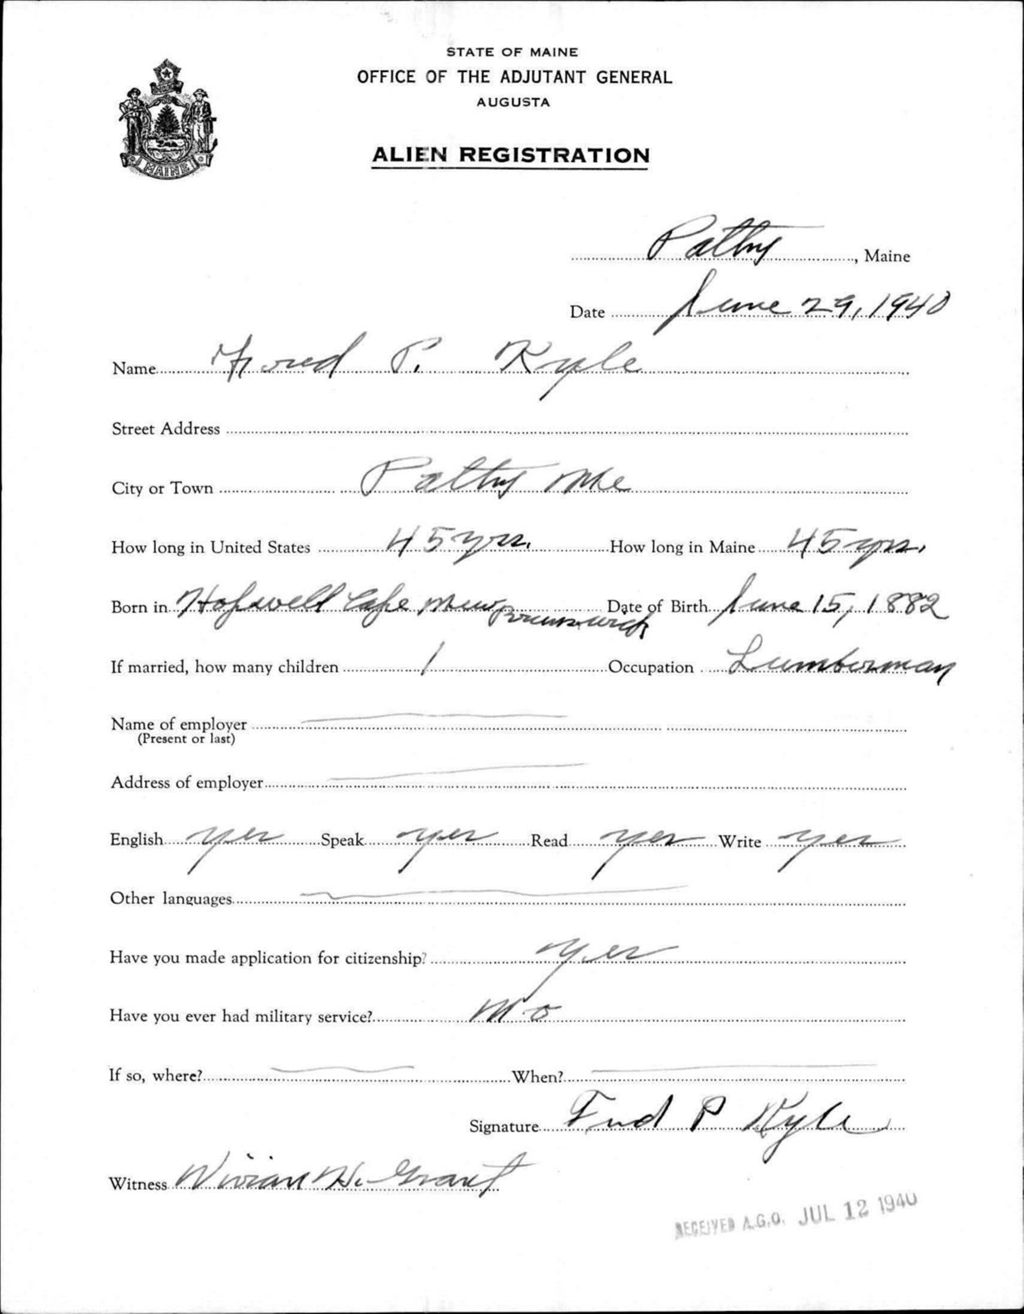 STATE OF MAINE
OFFICE OF THE ADJUTANT GENERAL
AUGUSTA
ALIEN REGISTRATION
MAINE
Patten, Maine
Date June 29, 1940
Name Fred P. Kyle
Street Address
City or Town Patten Me
How long in United States 45 yrs. How long in Maine 45 yrs.
Born in Hopewell Cape, New Brunswick Date of Birth June 15, 1882
If married, how many children 1 Occupation Lumberman
Name of employer
(Present or last)
Address of employer
English yes Speak yes Read yes Write yes
Other languages
Have you made application for citizenship? yes
Have you ever had military service? No
If so, where? When?
Signature Fred P Kyle
Witness Vivian H. Grant
RECEIVED A.G.O. JUL 12 1940